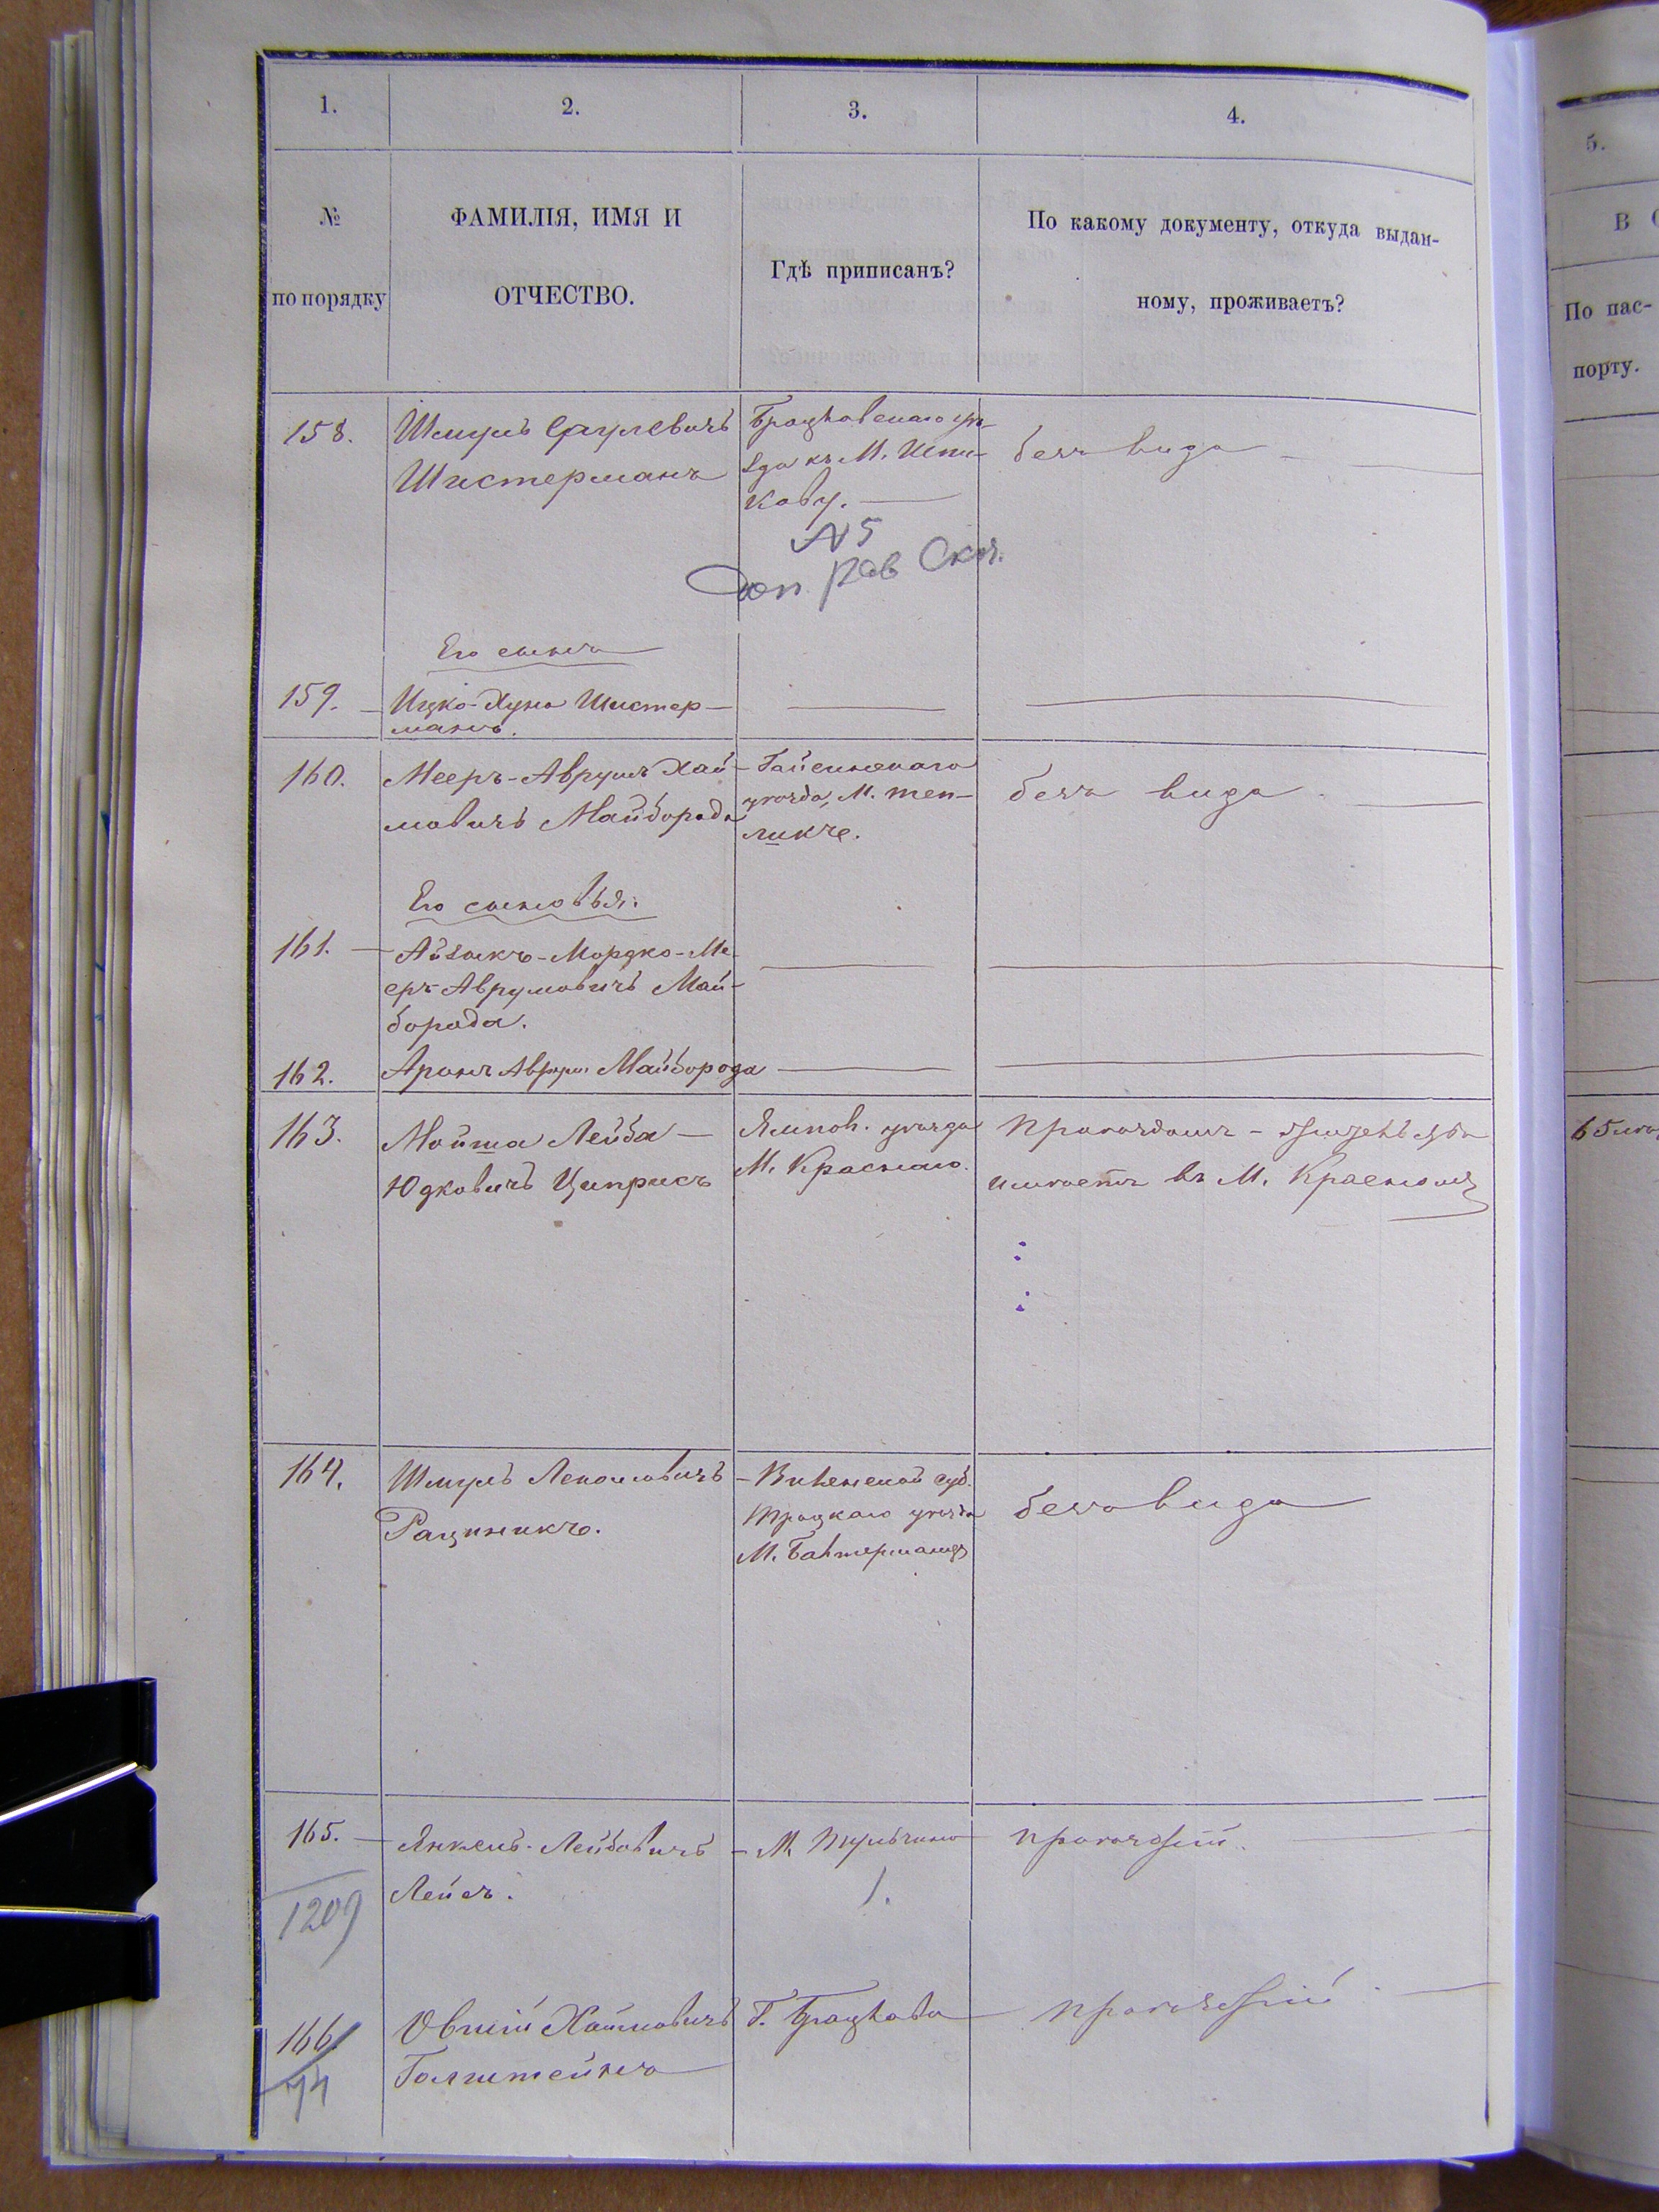 1.
2.
3.
4.
№
по порядку
ФАМИЛІЯ, ИМЯ И
ОТЧЕСТВО.
Гдѣ приписанъ?
По какому документу, откуда выдан-
ному, проживаетъ?
5.
В
По пас-
порту.
158.
Шмуль Сруулевичъ
Шистерманъ
Брацлавскаго уѣ-
зда къ М. Шпи-
кову.
безъ вида
№ 5
доп. рав
Его сынъ
159.
Ицко-Хуна Шистер-
манъ.
160.
Мееръ-Аврумъ Хай-
мовичъ Майборода
Гайсинскаго
уѣзда, М. Теп-
ликѣ.
безъ вида
Его сыновья:
161.
Айзыкъ-Мордко-Ме-
еръ Аврумовичъ Май-
борода.
162.
Аронъ Аврум Майборода
163.
Мойша Лейба
Юдковичъ Циприсъ
Ямпол. уѣзда
М. Краснаго.
Проѣздомъ -
имѣетъ въ М. Красномъ
164.
Шмуль
Рациникъ.
Виленской губ.
Троцкаго уѣзда
М. Бантерманцъ
безъ вида
165.
Янкель-Лейбовичъ
Лейсъ.
М. Тульчина
1.
проѣзж
1209
166
74
Овший Хаимовичъ
Голштейнъ
Г. Брацлава
проѣзжій